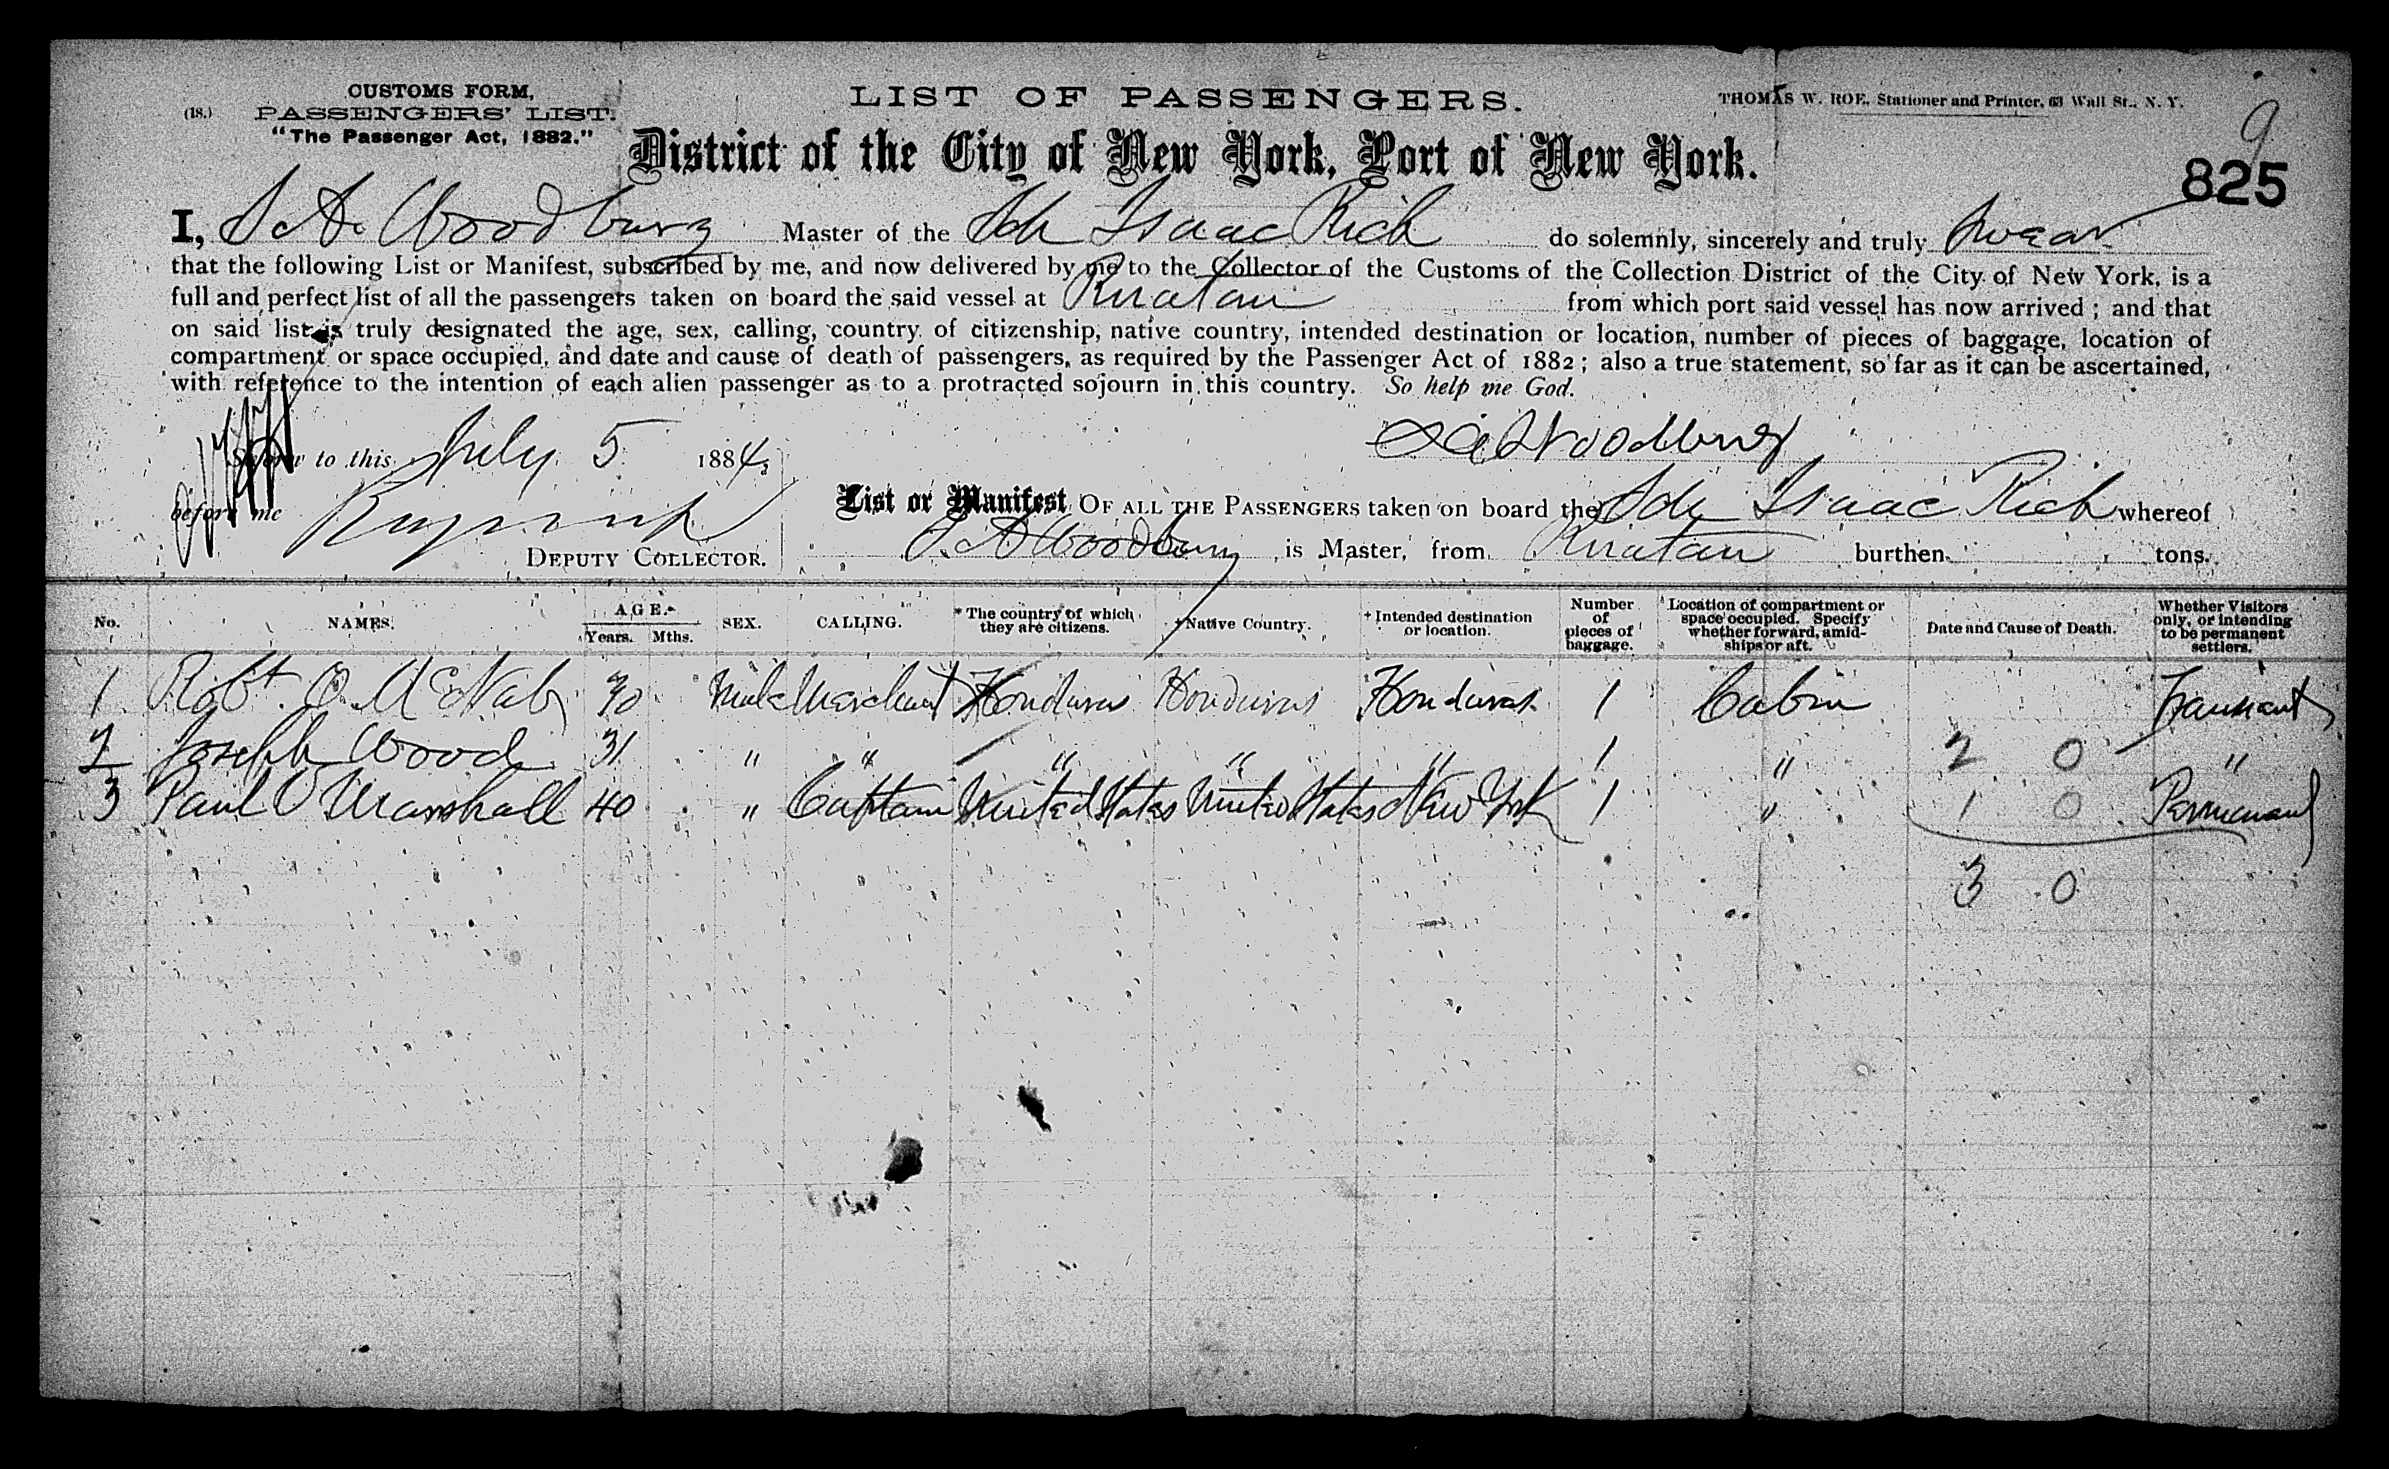 CUSTOMS FORM,
(18.) PASSENGERS' LIST.
"The Passenger Act, 1882."
LIST OF PASSENGERS.
THOMAS W. ROE, Stationer and Printer, 63 Wall St., N. Y.
9
District of the City of New York, Port of New York.
825
I, S. A. Woodbury Master of the Sch Isaac Rich do solemnly, sincerely and truly Swear
that the following List or Manifest, subscribed by me, and now delivered by me to the Collector of the Customs of the Collection District of the City of New York, is a
full and perfect list of all the passengers taken on board the said vessel at Ruatan from which port said vessel has now arrived ; and that
on said list is truly designated the age, sex, calling, country of citizenship, native country, intended destination or location, number of pieces of baggage, location of
compartment or space occupied, and date and cause of death of passengers, as required by the Passenger Act of 1882 ; also a true statement, so far as it can be ascertained,
with reference to the intention of each alien passenger as to a protracted sojourn in this country. So help me God.
Sworn to this July 5 1884
S A Woodbury
before me
DEPUTY COLLECTOR.
List or Manifest OF ALL THE PASSENGERS taken on board the Sch Isaac Rich whereof
S. A Woodbury is Master, from Ruatan burthen tons.
No. NAMES. AGE. Years. Mths. SEX. CALLING. * The country of which they are citizens. + Native Country. + Intended destination or location. Number of pieces of baggage. Location of compartment or space occupied. Specify whether forward, amidships or aft. Date and Cause of Death. Whether Visitors only, or intending to be permanent settlers.
1 Robt. O. McNab 30 Male Merchant Honduras Honduras Honduras 1 Cabin Transient
2 Joseph Wood 31 " " " " " 1 " 2 0 "
3 Paul O Marshall 40 " Captain United States United States New York 1 " 1 0 Permenant
3 0